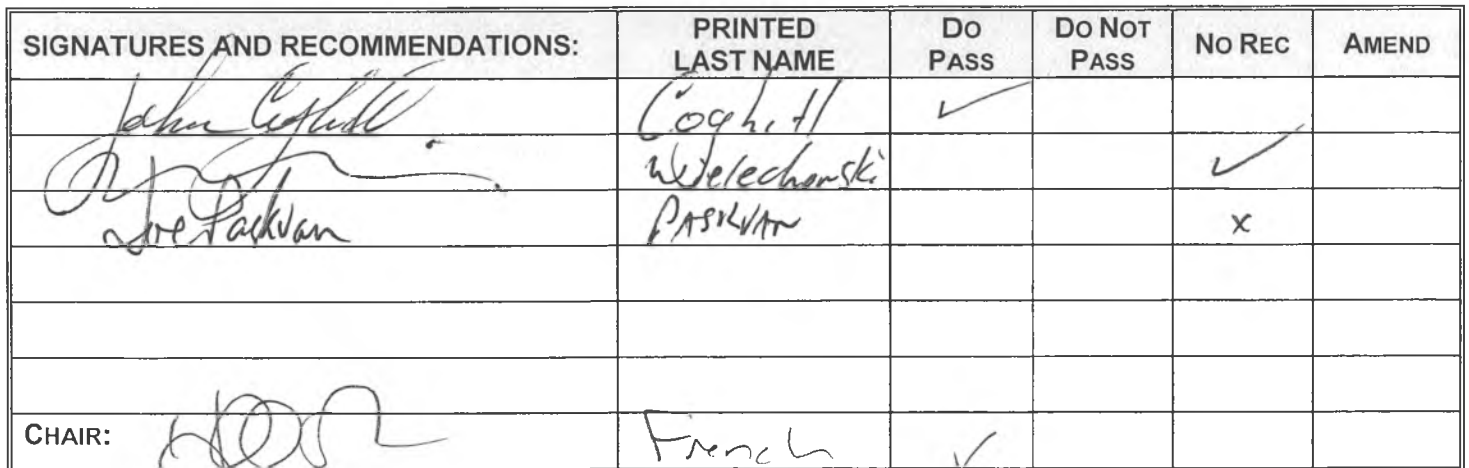 SIGNATURES AND RECOMMENDATIONS: PRINTED LAST NAME DO PASS DO NOT PASS NO REC AMEND
John Coghill Coghill ✓
Wielechowski ✓
Joe Paskvan PASKVAN x
CHAIR: French ✓